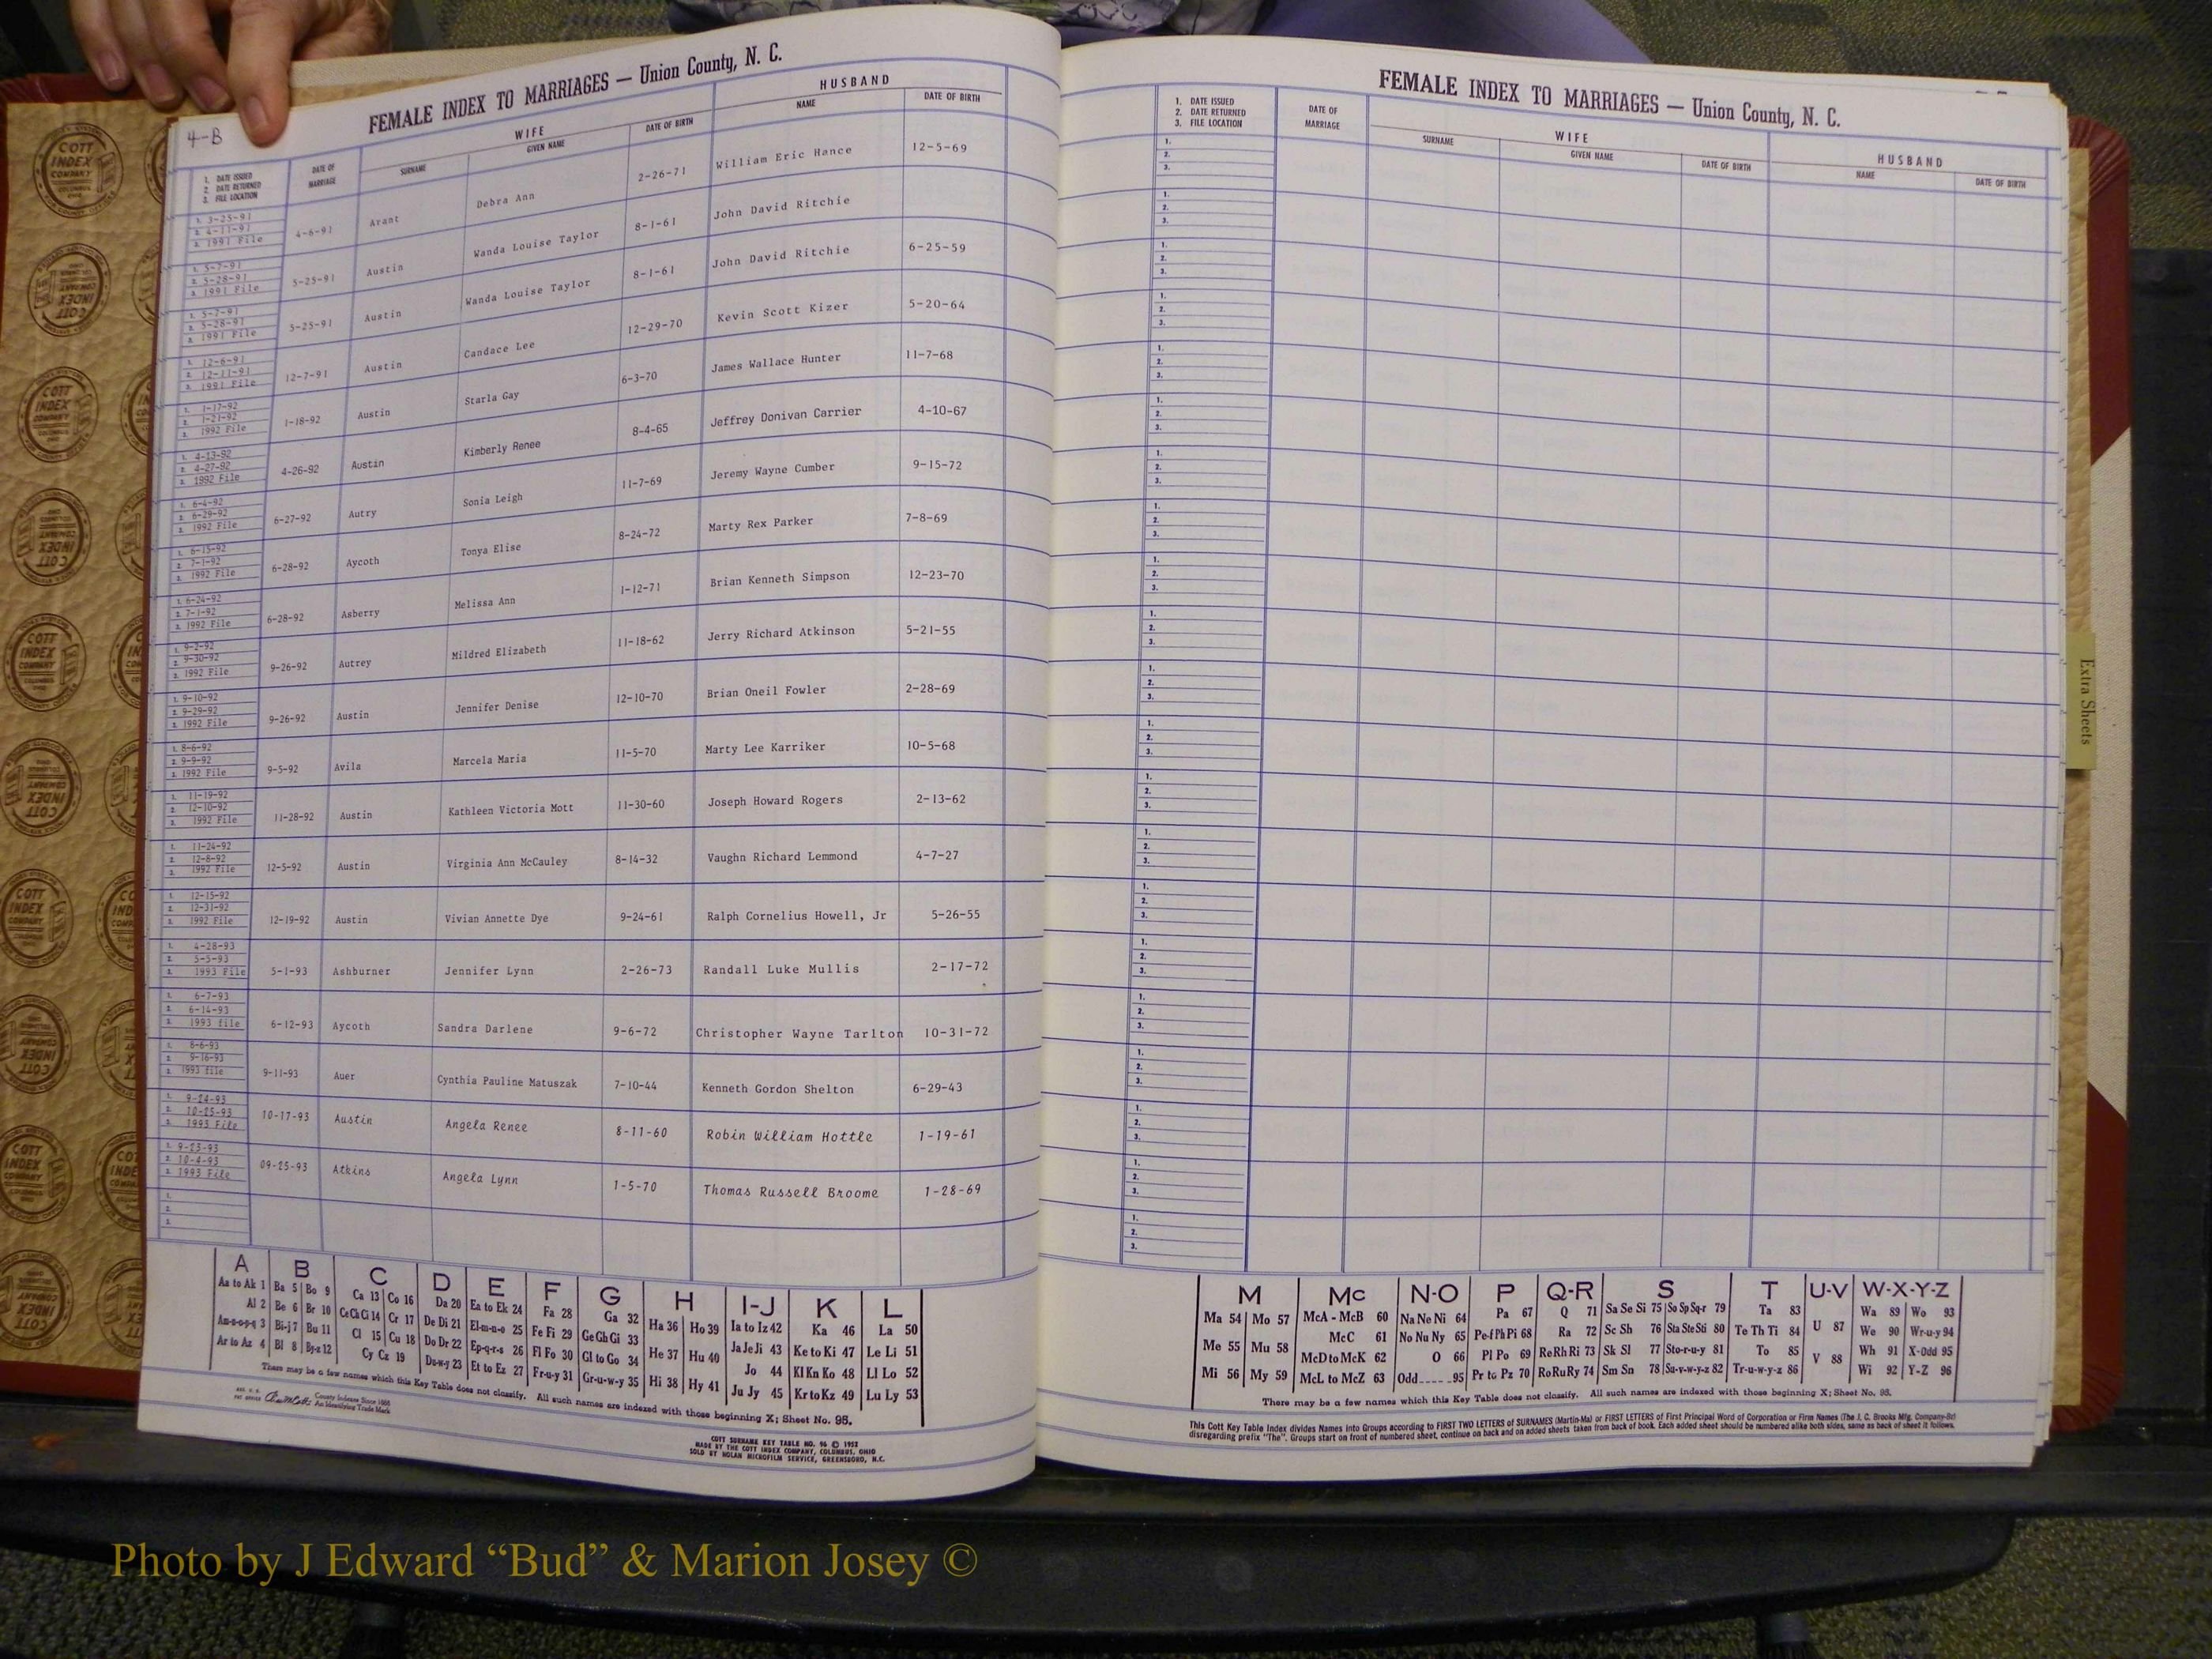 4-B
FEMALE INDEX TO MARRIAGES — Union County, N. C.
WIFE HUSBAND
1. DATE ISSUED
2. DATE RETURNED
3. FILE LOCATION
DATE OF MARRIAGE SURNAME GIVEN NAME DATE OF BIRTH NAME DATE OF BIRTH
1. 3-25-91
2. 4-11-91
3. 1991 File
4-6-91 Arant Debra Ann 2-26-71 William Eric Hance 12-5-69
1. 5-7-91
2. 5-28-91
3. 1991 File
5-25-91 Austin Wanda Louise Taylor 8-1-61 John David Ritchie
1. 5-7-91
2. 5-28-91
3. 1991 File
5-25-91 Austin Wanda Louise Taylor 8-1-61 John David Ritchie 6-25-59
1. 12-6-91
2. 12-11-91
3. 1991 File
12-7-91 Austin Candace Lee 12-29-70 Kevin Scott Kizer 5-20-64
1. 1-17-92
2. 1-21-92
3. 1992 File
1-18-92 Austin Starla Gay 6-3-70 James Wallace Hunter 11-7-68
1. 4-13-92
2. 4-27-92
3. 1992 File
4-26-92 Austin Kimberly Renee 8-4-65 Jeffrey Donivan Carrier 4-10-67
1. 6-4-92
2. 6-29-92
3. 1992 File
6-27-92 Autry Sonia Leigh 11-7-69 Jeremy Wayne Cumber 9-15-72
1. 6-15-92
2. 7-1-92
3. 1992 File
6-28-92 Aycoth Tonya Elise 8-24-72 Marty Rex Parker 7-8-69
1. 6-24-92
2. 7-1-92
3. 1992 File
6-28-92 Asberry Melissa Ann 1-12-71 Brian Kenneth Simpson 12-23-70
1. 9-2-92
2. 9-30-92
3. 1992 File
9-26-92 Autrey Mildred Elizabeth 11-18-62 Jerry Richard Atkinson 5-21-55
1. 9-10-92
2. 9-29-92
3. 1992 File
9-26-92 Austin Jennifer Denise 12-10-70 Brian Oneil Fowler 2-28-69
1. 8-6-92
2. 9-9-92
3. 1992 File
9-5-92 Avila Marcela Maria 11-5-70 Marty Lee Karriker 10-5-68
1. 11-19-92
2. 12-10-92
3. 1992 File
11-28-92 Austin Kathleen Victoria Mott 11-30-60 Joseph Howard Rogers 2-13-62
1. 11-24-92
2. 12-8-92
3. 1992 File
12-5-92 Austin Virginia Ann McCauley 8-14-32 Vaughn Richard Lemmond 4-7-27
1. 12-15-92
2. 12-31-92
3. 1992 File
12-19-92 Austin Vivian Annette Dye 9-24-61 Ralph Cornelius Howell, Jr 5-26-55
1. 4-28-93
2. 5-5-93
3. 1993 File
5-1-93 Ashburner Jennifer Lynn 2-26-73 Randall Luke Mullis 2-17-72
1. 6-7-93
2. 6-14-93
3. 1993 file
6-12-93 Aycoth Sandra Darlene 9-6-72 Christopher Wayne Tarlton 10-31-72
1. 8-6-93
2. 9-16-93
3. 1993 file
9-11-93 Auer Cynthia Pauline Matuszak 7-10-44 Kenneth Gordon Shelton 6-29-43
1. 9-24-93
2. 10-25-93
3. 1993 File
10-17-93 Austin Angela Renee 8-11-60 Robin William Hottle 1-19-61
1. 9-23-93
2. 10-4-93
3. 1993 File
09-25-93 Atkins Angela Lynn 1-5-70 Thomas Russell Broome 1-28-69
1.
2.
3.
A B C D E F G H I-J K L
Aa to Ak 1 Ba 5 Bo 9 Ca 13 Co 16 Da 20 Ea to Ek 24 Fa 28 Ga 32 Ha 36 Ho 39 Ia to Iz 42 Ka 46 La 50
Al 2 Be 6 Br 10 Ce Ch Ci 14 Cr 17 De Di 21 El-m-n-o 25 Fe Fi 29 Ge Gh Gi 33 He 37 Hu 40 Ja Je Ji 43 Ke to Ki 47 Le Li 51
Am-n-o-p-q 3 Bi-j 7 Bu 11 Cl 15 Cu 18 Do Dr 22 Ep-q-r-s 26 Fl Fo 30 Gl to Go 34 Hi 38 Hy 41 Jo 44 Kl Kn Ko 48 Ll Lo 52
Ar to Az 4 Bl 8 By-z 12 Cy Cz 19 Du-w-y 23 Et to Ez 27 Fr-u-y 31 Gr-u-w-y 35 Ju Jy 45 Kr to Kz 49 Lu Ly 53
There may be a few names which this Key Table does not classify. All such names are indexed with those beginning X; Sheet No. 96.
County Indexes Since 1888
An Identifying Trade Mark
COTT SURNAME KEY TABLE NO. 96 © 1952
MADE BY THE COTT INDEX COMPANY, COLUMBUS, OHIO
SOLD BY NOLAN MICROFILM SERVICE, GREENSBORO, N.C.
FEMALE INDEX TO MARRIAGES — Union County, N. C.
1. DATE ISSUED
2. DATE RETURNED
3. FILE LOCATION
DATE OF MARRIAGE
WIFE HUSBAND
SURNAME GIVEN NAME DATE OF BIRTH NAME DATE OF BIRTH
1.
2.
3.
1.
2.
3.
1.
2.
3.
1.
2.
3.
1.
2.
3.
1.
2.
3.
1.
2.
3.
1.
2.
3.
1.
2.
3.
1.
2.
3.
1.
2.
3.
1.
2.
3.
1.
2.
3.
1.
2.
3.
1.
2.
3.
1.
2.
3.
1.
2.
3.
1.
2.
3.
1.
2.
3.
1.
2.
3.
1.
2.
3.
Extra Sheets
M Mc N-O P Q-R S T U-V W-X-Y-Z
Ma 54 Mo 57 McA - McB 60 Na Ne Ni 64 Pa 67 Q 71 Sa Se Si 75 So Sp Sq-r 79 Ta 83 U 87 Wa 89 Wo 93
Me 55 Mu 58 McC 61 No Nu Ny 65 Pe-f Ph Pi 68 Ra 72 Sc Sh 76 Sta Ste Sti 80 Te Th Ti 84 V 88 We 90 Wr-u-y 94
McD to McK 62 O 66 Pl Po 69 Re Rh Ri 73 Sk Sl 77 Sto-r-u-y 81 To 85 Wh 91 X-Odd 95
Mi 56 My 59 McL to McZ 63 Odd.....95 Pr to Pz 70 Ro Ru Ry 74 Sm Sn 78 Su-v-w-y-z 82 Tr-u-w-y-z 86 Wi 92 Y-Z 96
There may be a few names which this Key Table does not classify. All such names are indexed with those beginning X; Sheet No. 96.
This Cott Key Table Index divides Names into Groups according to FIRST TWO LETTERS of SURNAMES (Martin-Ma) or FIRST LETTERS of First Principal Word of Corporation or Firm Names (The J. C. Brooks Mfg. Company-Br)
disregarding prefix "The". Groups start on front of numbered sheet, continue on back and on added sheets taken from back of book. Each added sheet should be numbered alike both sides, same as back of sheet it follows.
COTT INDEX COMPANY
Photo by J Edward “Bud” & Marion Josey ©